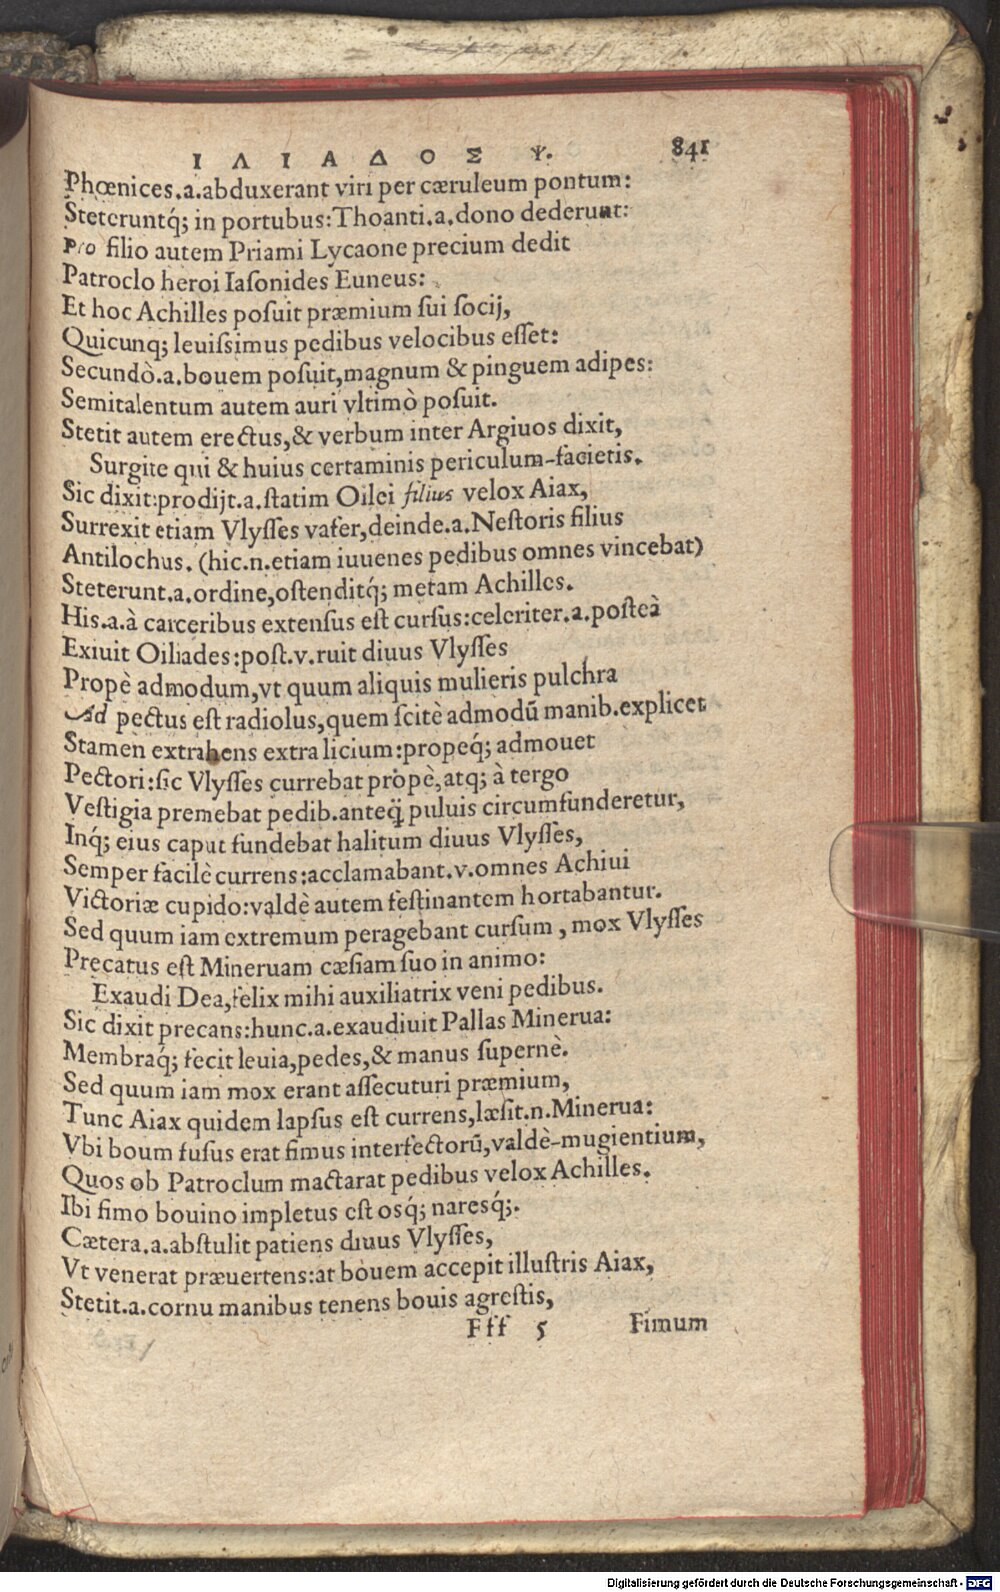 ΙΛΙΑΔΟΣ Ψ. 841
Phœnices.a.abduxerant viri per cæruleum pontum:
Steteruntq́; in portubus:Thoanti.a.dono dederunt:
Pro filio autem Priami Lycaone precium dedit
Patroclo heroi Iaſonides Euneus:
Et hoc Achilles poſuit præmium ſui ſocij,
Quicunq; leuiſsimus pedibus velocibus eſſet:
Secundò.a.bouem poſuit,magnum & pinguem adipes:
Semitalentum autem auri vltimò poſuit.
Stetit autem erectus,& verbum inter Argiuos dixit,
Surgite qui & huius certaminis periculum-facietis.
Sic dixit:prodijt.a.ſtatim Oilei filius velox Aiax,
Surrexit etiam Vlyſſes vafer,deinde.a.Neſtoris filius
Antilochus. (hic.n.etiam iuuenes pedibus omnes vincebat)
Steterunt.a.ordine,oſtenditq́; metam Achilles.
His.a.à carceribus extenſus eſt curſus:celeriter.a.poſteà
Exiuit Oiliades:poſt.v.ruit diuus Vlyſſes
Propè admodum,vt quum aliquis mulieris pulchra
Ad pectus eſt radiolus,quem ſcitè admodū manib.explicet
Stamen extrahens extra licium:propeq́; admouet
Pectori:ſic Vlyſſes currebat propè,atq; à tergo
Veſtigia premebat pedib.anteq̃ puluis circumfunderetur,
Inq́; eius caput fundebat halitum diuus Vlyſſes,
Semper facilè currens:acclamabant.v.omnes Achiui
Victoriæ cupido:valdè autem feſtinantem hortabantur.
Sed quum iam extremum peragebant curſum , mox Vlyſſes
Precatus eſt Mineruam cæſiam ſuo in animo:
Exaudi Dea,felix mihi auxiliatrix veni pedibus.
Sic dixit precans:hunc.a.exaudiuit Pallas Minerua:
Membraq́; fecit leuia,pedes,& manus ſupernè.
Sed quum iam mox erant aſſecuturi præmium,
Tunc Aiax quidem lapſus eſt currens,læſit.n.Minerua:
Vbi boum fuſus erat fimus interfectorū,valdè-mugientium,
Quos ob Patroclum mactarat pedibus velox Achilles.
Ibi fimo bouino impletus eſt osq́; naresq́;.
Cætera.a.abſtulit patiens diuus Vlyſſes,
Vt venerat præuertens:at bouem accepit illuſtris Aiax,
Stetit.a.cornu manibus tenens bouis agreſtis,
Fff 5 Fimum
Digitalisierung gefördert durch die Deutsche Forschungsgemeinschaft - DFG